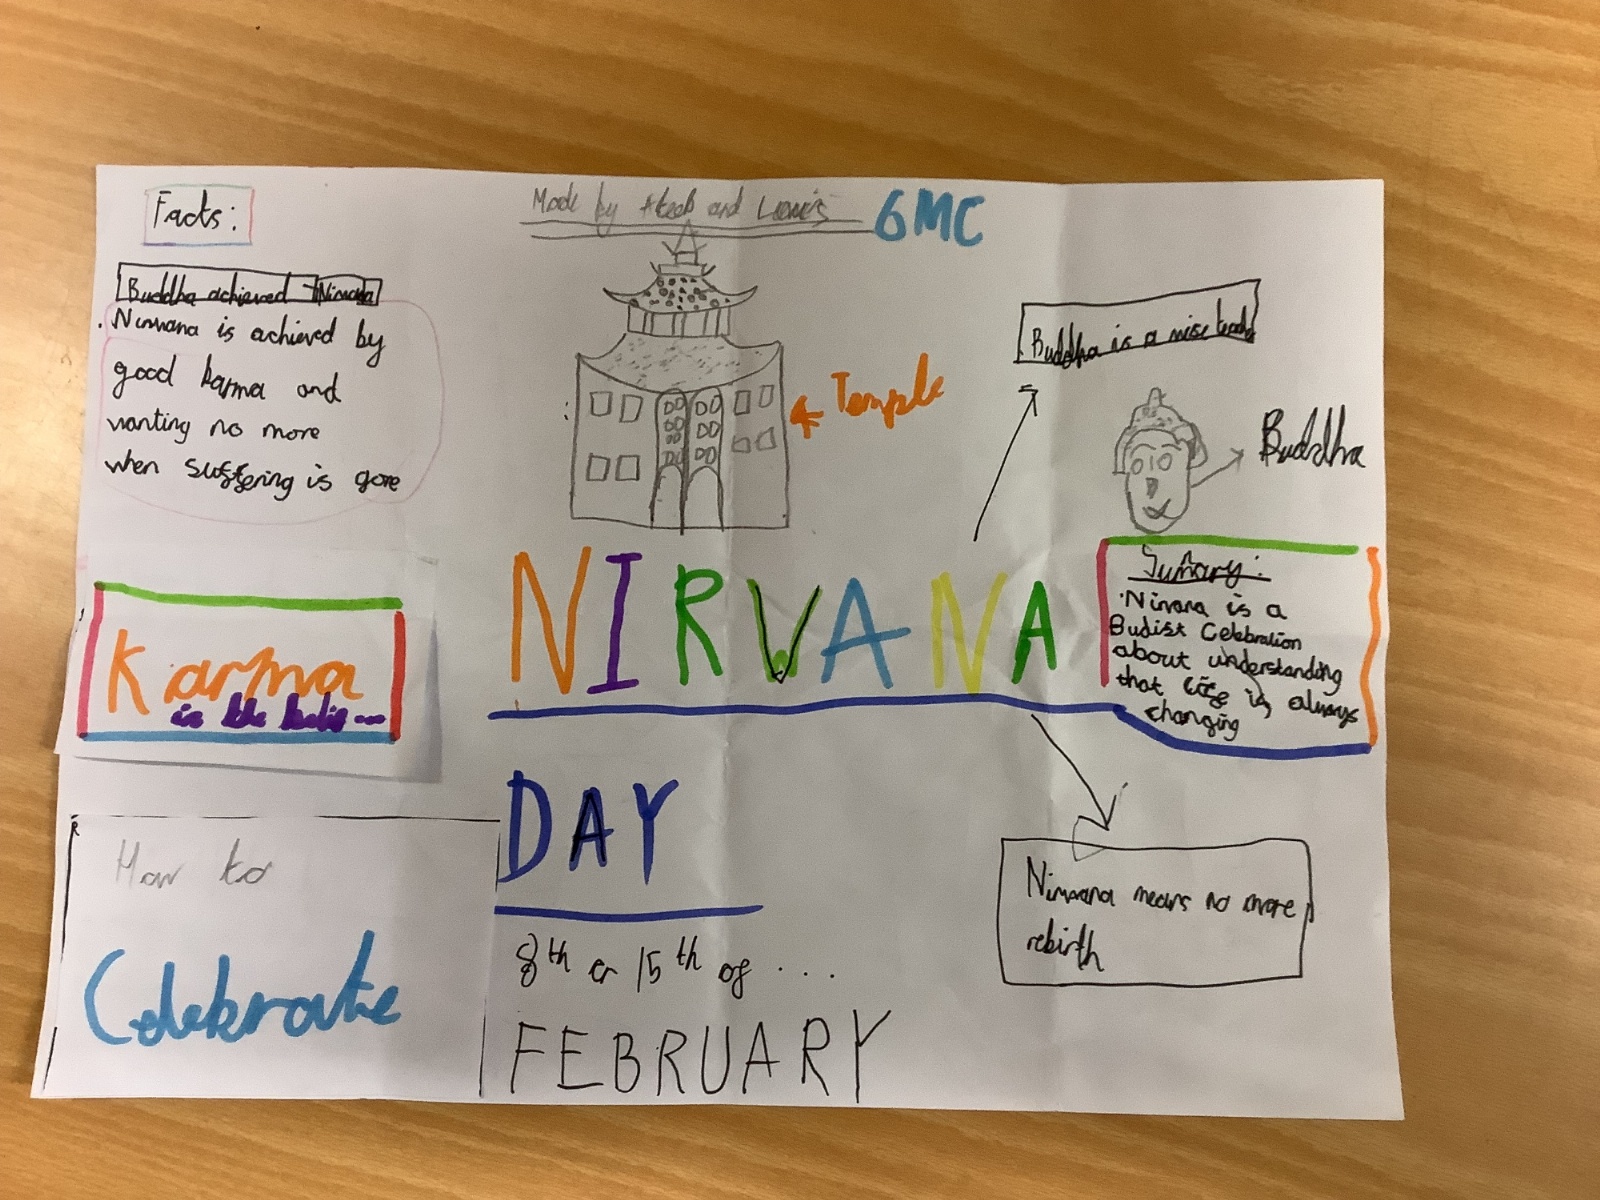 Facts:
Made by and 6MC
Buddha achieved Nirvana
. Nirvana is achieved by
good karma and
wanting no more
when suffering is gone
Temple
Buddha is a wise
Buddha
NIRWANA
Sumary:
·Nirvana is a
Budist Celebration
about understanding
that life is always
changing
Karma
is the ...
DAY
How to
Celebrate
8th or 15th of ....
FEBRUARY
Nirvana means no more
rebirth